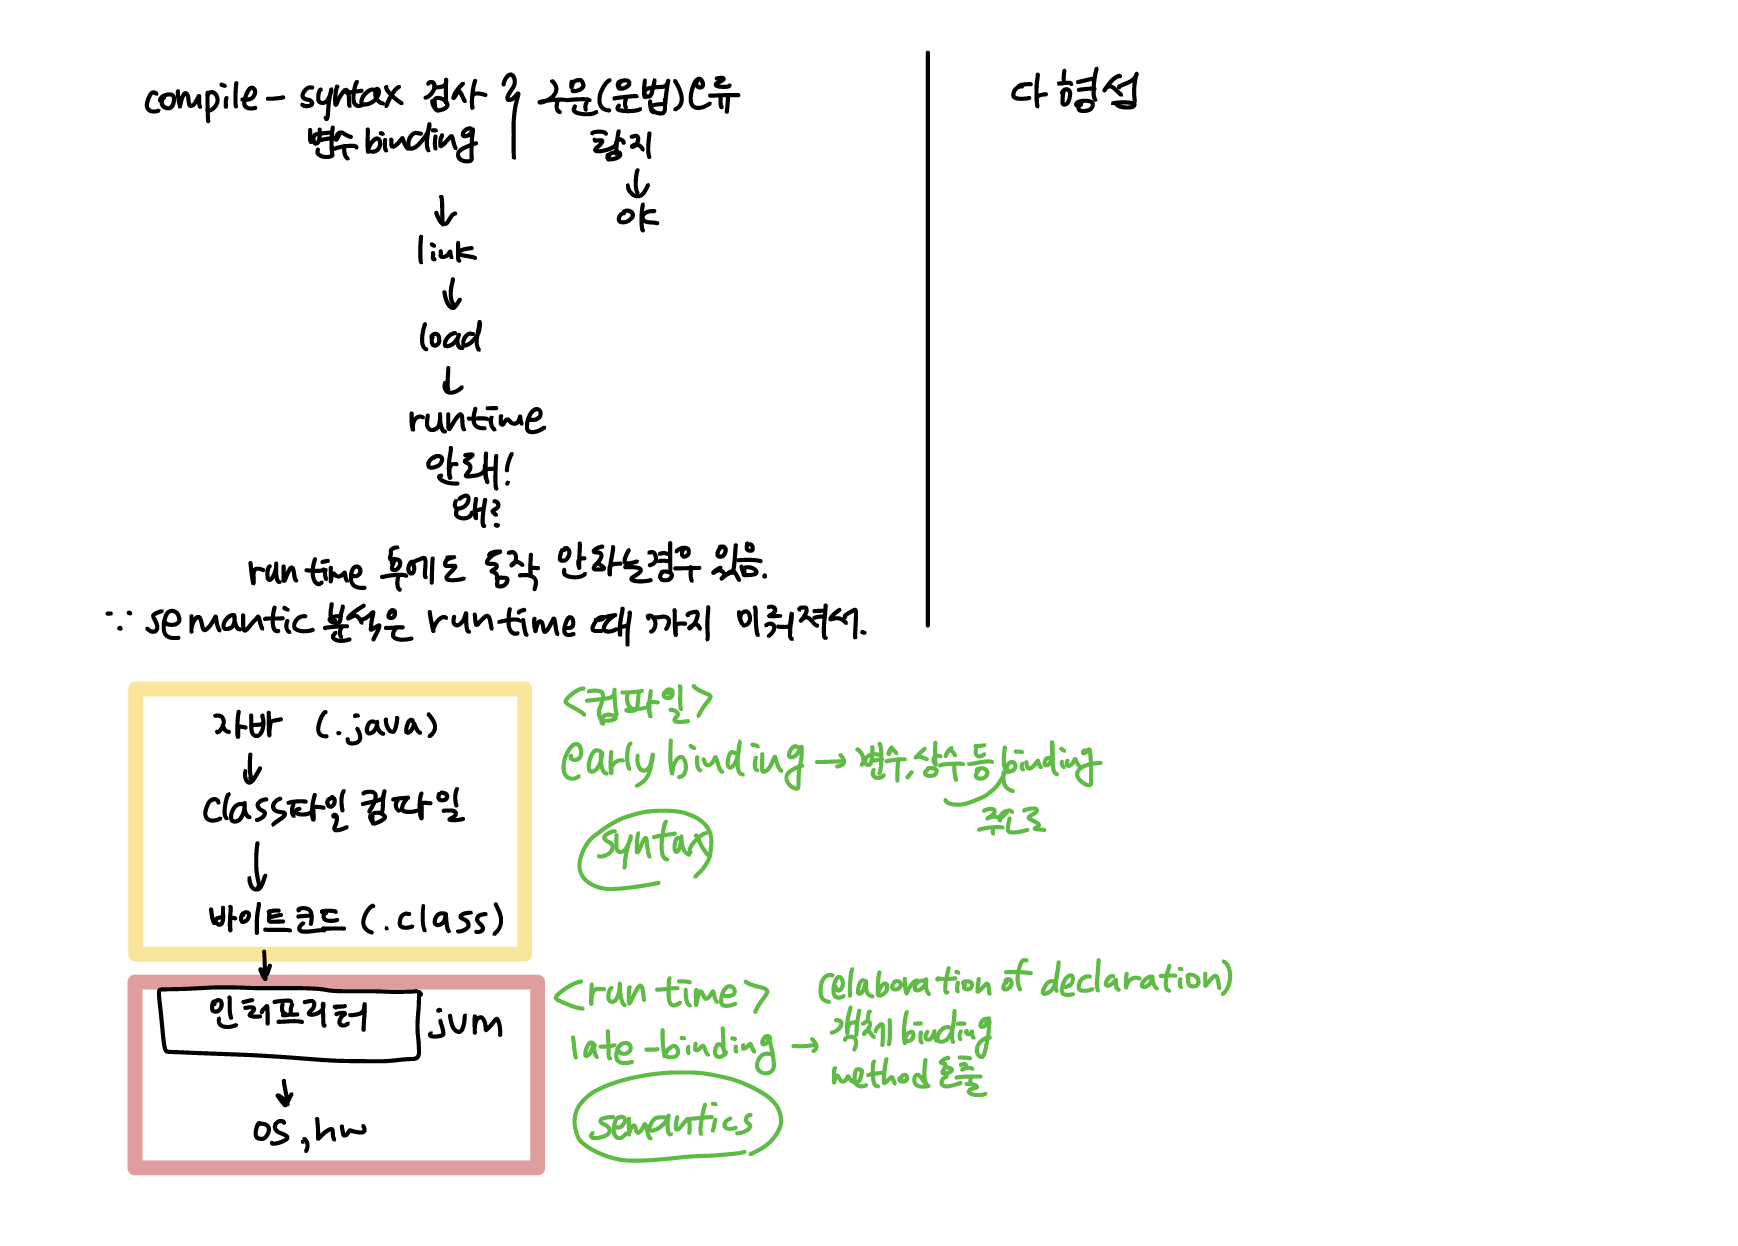 compile - syntax 검사
변수 binding
구문(문법)오류
탐지
↓
야
↓
link
↓
load
↓
runtime
안돼!
왜?
run time 후에도 동작 안하는경우 있음.
∵ semantic 분석은 runtime 때 까지 미뤄져서.
다형성
자바 (.java)
↓
class파일 컴파일
↓
바이트코드 (.class)
↓
인터프리터
jvm
↓
OS, hw
<컴파일>
early binding → 변수, 상수 등 binding
주소로
syntax
<run time>
(elaboration of declaration)
late-binding → 객체 binding
method 호출
semantics